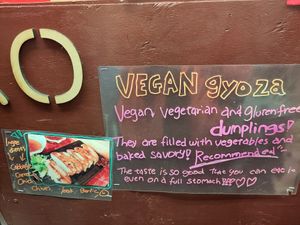 KO
VEGAN gyoza
Vegan, vegetarian and gluten free
dumplings!
They are filled with vegetables and
baked savory!! Recommended
The taste is so good that you can eat it
even on a full stomach!!! ♡♡
Cabbage
Carrot
Onion
Chives
Garlic